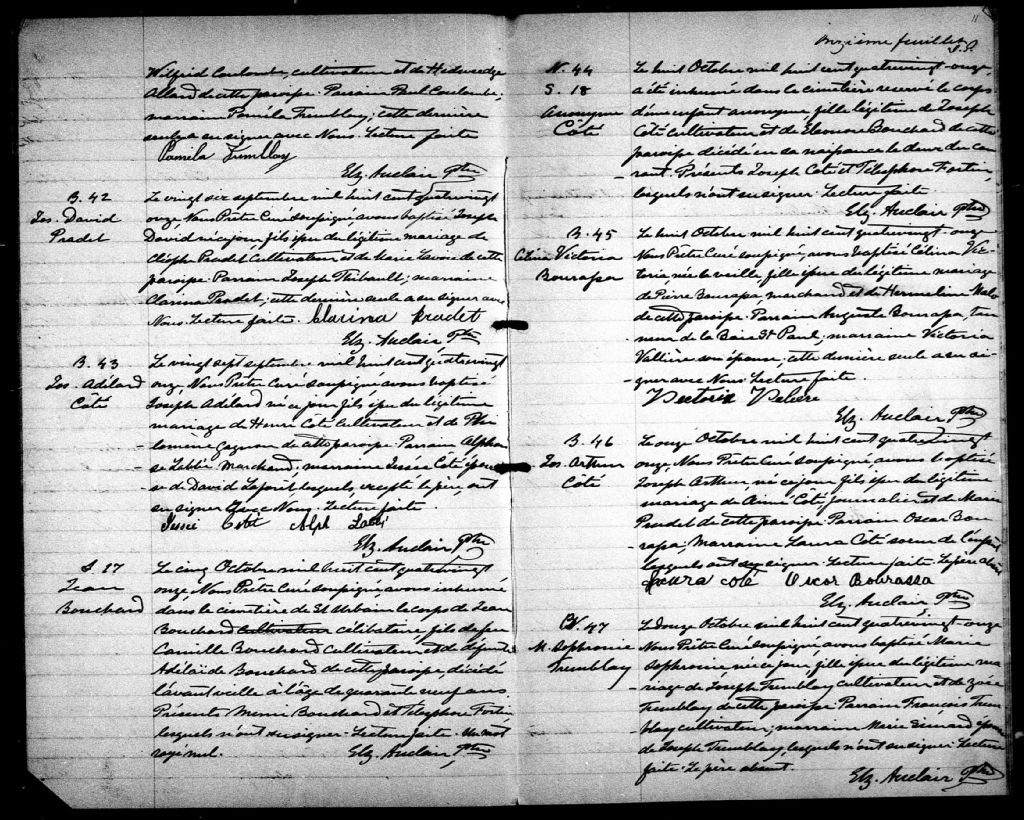 Wilfrid Coulombe, cultivateur et de Hedwedge
Allard de cette paroisse. Parrain Paul Coulombe,
marraine Pamela Tremblay, cette dernière
seule a su signer avec Nous. Lecture faite
Pamila Tremblay
Elz. Auclair Ptre
B. 42
Jos. David
Pradet
Le vingt six septembre mil huit cent quatrevingt
onze, Nous Prêtre Curé soussigné avons baptisé Joseph
David né ce jour, fils issu du légitime mariage de
Cléophe Pradet Cultivateur et de Marie Lavoie de cette
paroisse. Parrain Joseph Thibault, marraine
Clarina Pradet, cette dernière seule a su signer avec
Nous. Lecture faite. Clarina Pradet
Elz. Auclair Ptre
B. 43
Jos. Adélard
Côté
Le vingt sept septembre mil huit cent quatrevingt
onze, Nous Prêtre Curé soussigné avons baptisé
Joseph Adélard né ce jour fils issu du légitime
mariage d'Henri Côté Cultivateur et de Phi
-lomène Gagnon de cette paroisse. Parrain Alphon
-se Labbé Marchand, marraine Jessée Coté épou
-se de David Laforêt lesquels, excepté le père, ont
su signer avec Nous. Lecture faite.
Jessée Coté Alph Labbé
Elz. Auclair Ptre
S. 17
Jean
Bouchard
Le cinq Octobre mil huit cent quatrevingt
onze, Nous Prêtre Curé soussigné avons inhumé
dans le cimetière de St Urbain le corps de Jean
Bouchard Cultivateur célibataire, fils de feu
Camille Bouchard Cultivateur et de défunte
Adélaïde Bouchard de cette paroisse, décédé
l'avant veille à l'âge de quarante neuf ans.
Présents Bouchard et Télesphore Fortin
lesquels n'ont su signer. Lecture faite. Un mot
rayé nul. Elz. Auclair, Ptre
11
Onzième feuillet
N. 44
S. 18
Anonyme
Côté
Le huit Octobre mil huit cent quatrevingt onze,
a été inhumé dans le cimetière réservé le corps
d'une enfant anonyme, fille légitime de Joseph
Coté Cultivateur et de Eléonore Bouchard de cette
paroisse décédé en sa naissance le deux du cou
-rant. Présents Joseph Coté et Télesphore Fortin,
lesquels n'ont su signer. Lecture faite.
Elz. Auclair Ptre
B. 45
Célina Victoria
Bourassa
Le huit Octobre mil huit cent quatrevingt onze
Nous Prêtre Curé soussigné, avons baptisé Célina Vic
-toria née la veille, fille issue du légitime mariage
de Pierre Bourassa, marchand et de Hermeline Malo
de cette paroisse. Parrain Auguste Bourassa, tan
-neur de la Baie St Paul; marraine Victoria
Vallière son épouse, cette dernière seule a su si
-gner avec Nous Lecture faite.
Victoria Valiere
Elz. Auclair Ptre
B. 46
Jos. Arthur
Côté
Le onze Octobre mil huit cent quatrevingt
onze, Nous Prêtre Curé soussigné, avons baptisé
Joseph Arthur, né ce jour, fils issu du légitime
mariage de Aimé Coté, journalier et de Marie
Pradet de cette paroisse Parrain Oscar Bou
-rassa, Marraine Laura Côté soeur de l'enfant
lesquels ont su signer. Lecture faite. Le père absent
Laura coté Oscor Bourassa
Elz. Auclair Ptre
B. 47
M. Sophronie
Tremblay
Le Douze Octobre mil huit cent quatrevingt onze
Nous Prêtre Curé soussigné, avons baptisé Marie
Sophronie, née ce jour, fille issue du légitime ma
-riage de Joseph Tremblay cultivateur et de Zoée
Tremblay de cette paroisse Parrain François Trem
-blay cultivateur; marraine Marie Simard épouse
de Joseph Tremblay, lesquels n'ont su signer. Lecture
faite. Le père absent.
Elz. Auclair Ptre